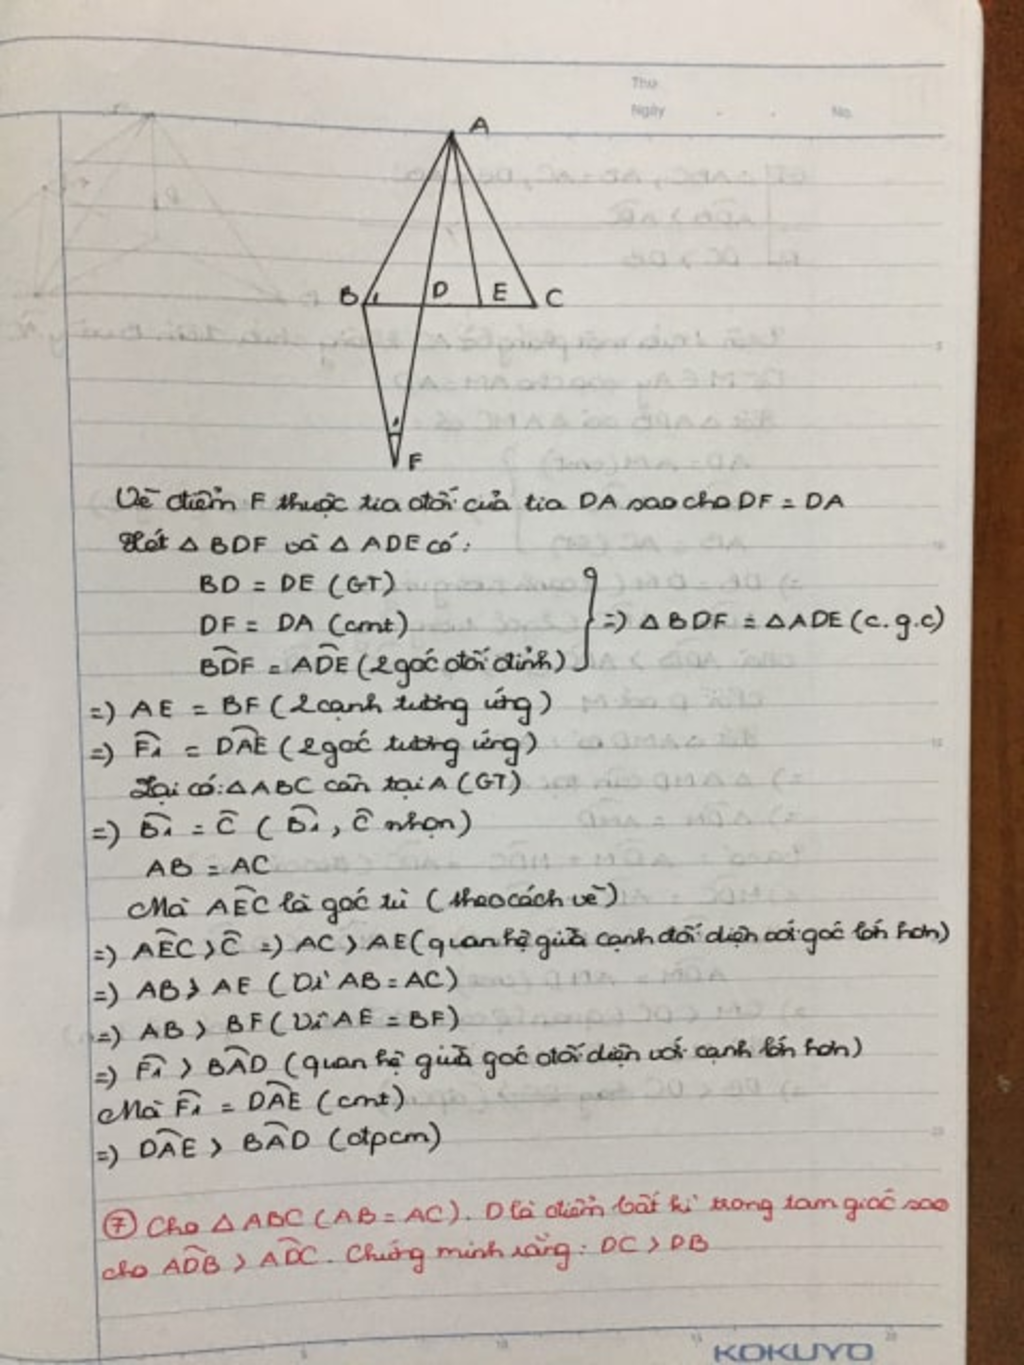 Thứ
Ngày . . No.
A
B 1 D E C
1
F
Vẽ điểm F thuộc tia đối của tia DA sao cho DF = DA
Xét △ BDF và △ ADE có:
BD = DE (GT)
DF = DA (cmt)
BDF̂ = ADÊ (2 góc đối đỉnh)
=> △ BDF = △ADE (c.g.c)
=> AE = BF (2 cạnh tương ứng)
=> F̂₁ = DAÊ (2 góc tương ứng)
Lại có: △ABC cân tại A (GT)
=> B̂₁ = Ĉ ( B̂₁, Ĉ nhọn)
AB = AC
Mà AEĈ là góc tù (theo cách vẽ)
=> AEĈ > Ĉ => AC > AE (quan hệ giữa cạnh đối diện với góc lớn hơn)
=> AB > AE (Vì AB = AC)
=> AB > BF (Vì AE = BF)
=> F̂₁ > BAD̂ (quan hệ giữa góc đối diện với cạnh lớn hơn)
Mà F̂₁ = DAÊ (cmt)
=> DAÊ > BAD̂ (đtpcm)
⑦ Cho △ ABC (AB = AC). D là điểm bất kì trong tam giác sao
cho ADB̂ > ADĈ. Chứng minh rằng: DC > DB
KOKUYO